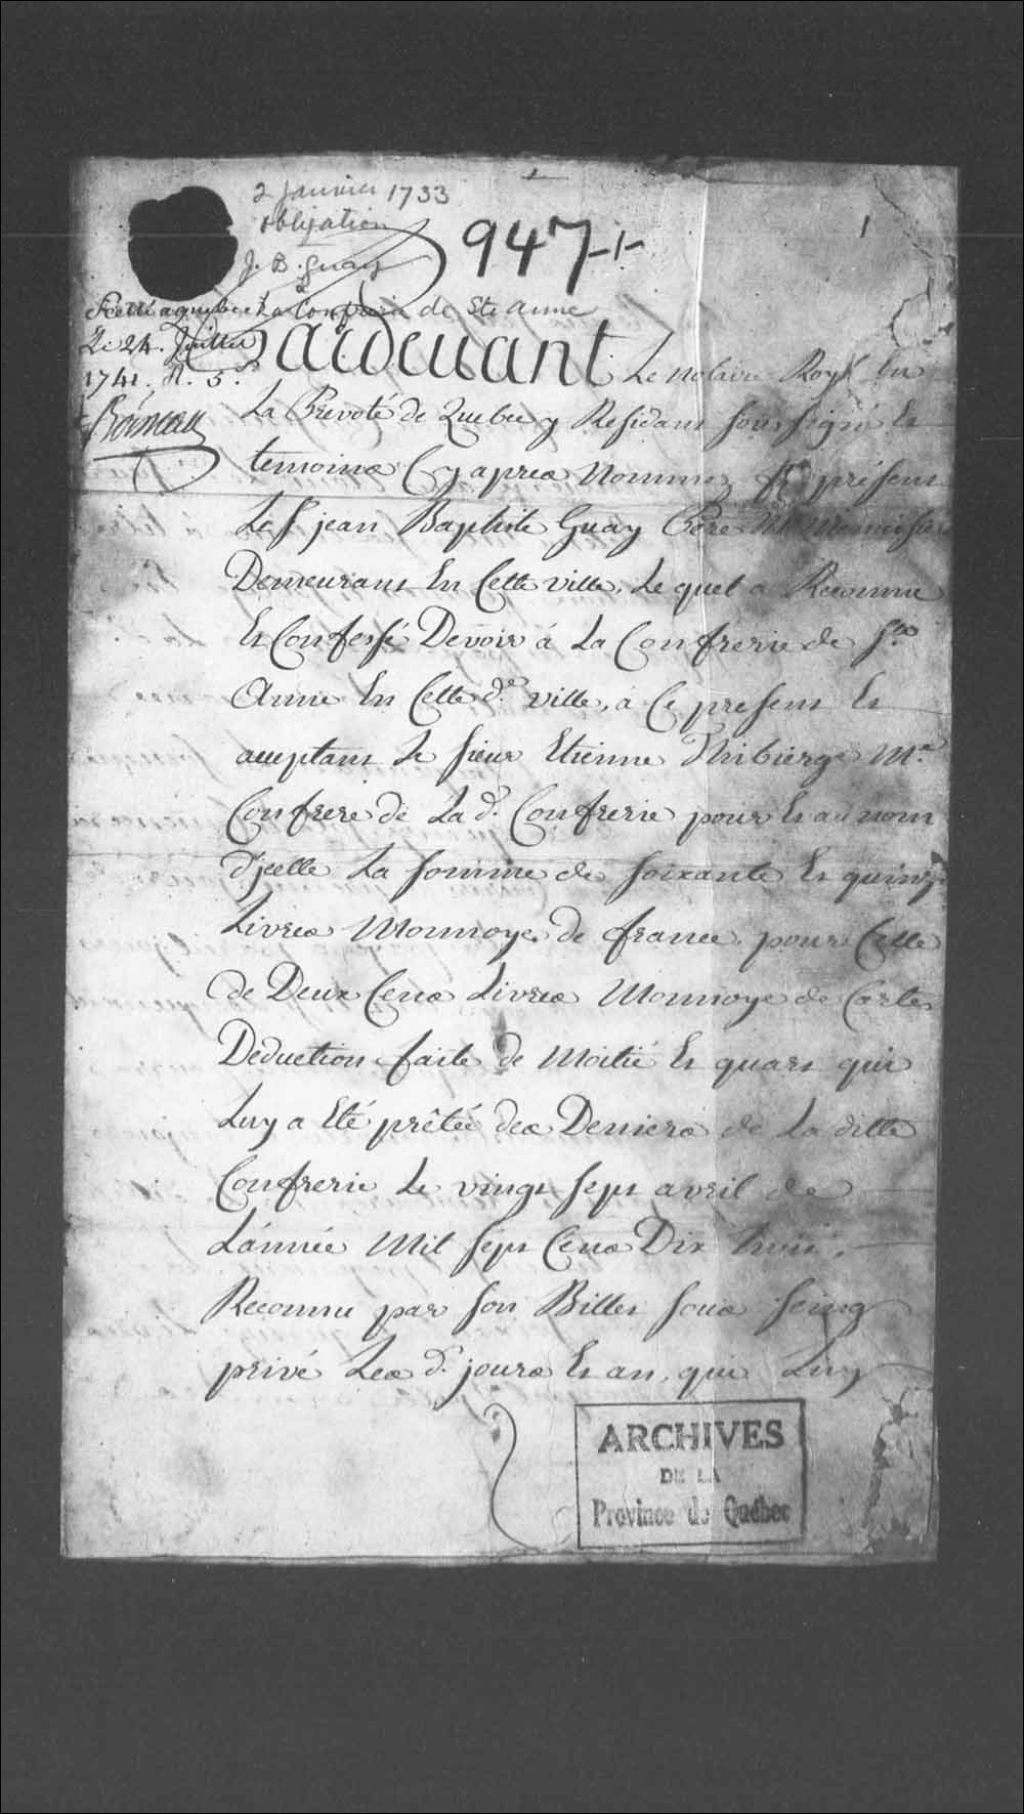 2 janvier 1733
obligation
J. B. Guay
à
947
1
La Confrérie de Ste Anne
Scellé a quebec
Le 24. Juillet
1741. N. 5.
Boisseau
Pardevant Le notaire Royl En
La Prevoté de Quebec y Residant soussigné Et
temoins Cy apres Nommez fut présent
Le Sr jean Baptiste Guay Pere
Demeurant En Cette ville, Lequel a Reconnu
Et Confessé Devoir á La Confrerie de Ste
Anne En Cette de ville, á Ce present Et
acceptant Le sieur Etienne Thibierge Me
Confrere de La de Confrerie pour Et au nom
D'jcelle La somme de soixante Et quinze
Livres Monnoye de france pour Celle
de Deux Cens Livres Monnoye de Carte
Deduction faite de Moitié Et quart qui
Luy a Eté prêtée des Deniers de La ditte
Confrerie Le vingt sept avril de
L'année Mil sept Cens Dix huit.
Reconnu par son Billet sous seing
privé Les d. jours Et an, qui Luy
ARCHIVES
DE LA
Province de Québec